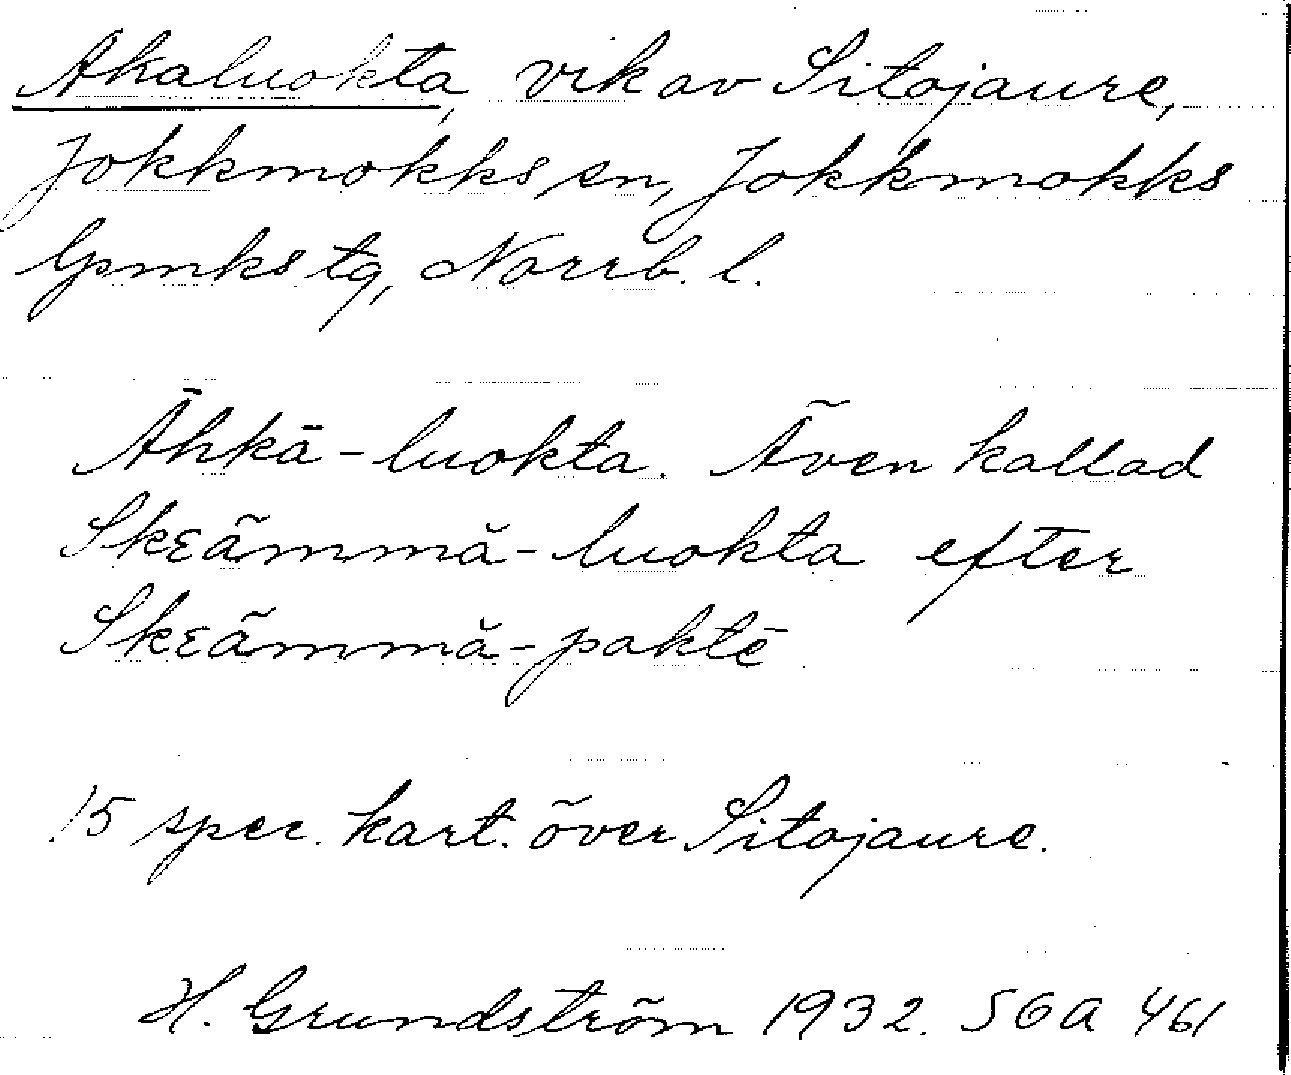 Akaluokta, vik av Sitojaure,
Jokkmokks sn, Jokkmokks
lpmks tg, Norrb. l.
Āhkā-luokta. Även kallad
Skɛämmă-luokta efter
Skɛämmă-paktē
15 spec. kart. över Sitojaure.
H. Grundström 1932. SOA 461